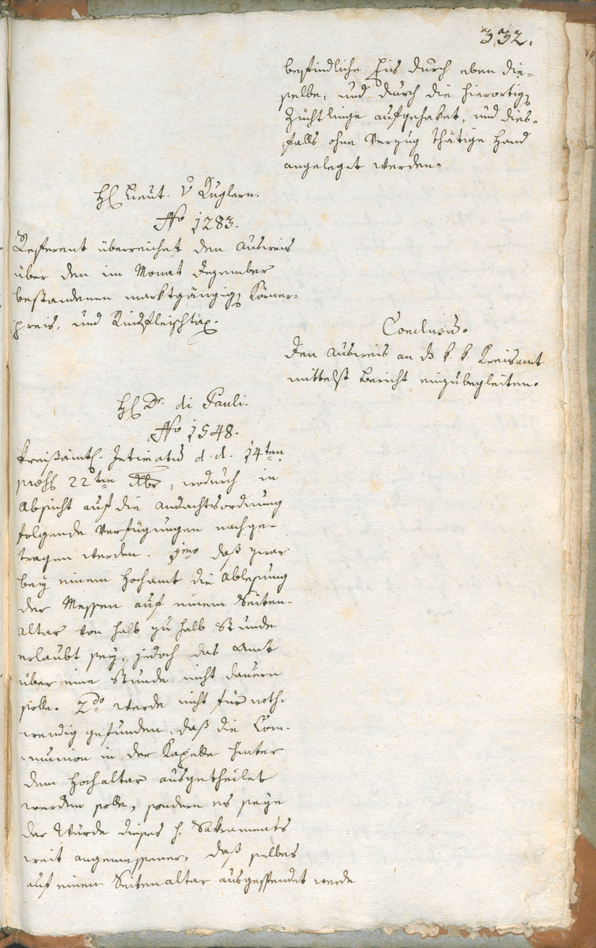 332.
befindliche Eis durch eben die-
selbe, und durch die hierortig
Züchtlinge aufgehaket, und dies-
falls ohne Verzug thätige Hand
angeleget werden.
H. Lieut. v Kuglern.
No 1283.
Refferent überreichet den Ausweis
über den im Monat Dezember
bestandenen marktgängig Körner-
preis, und Rindfleischtax.
Conclusum.
Den Ausweis an d k. k. Kreisamt
mittelst Bericht einzubegleiten.
H Dr. di Pauli.
No 1548.
Kreisämtl. Intimatum d. d. 14ten
præs 22ten Xbr, wodurch in
Absicht auf die Andachtsordnung
folgende Verfügungen nachge-
tragen werden. 1mo daß zwar
bey einem Hochamt die Ablesung
der Messen auf einem Seiten-
altar von halb zu halb Stunde
erlaubt sey, jedoch das Amt
über eine Stunde nicht dauern
solle. 2do werde nicht für noth-
wendig gefunden, daß die Com-
munion in der Kapelle hinter
dem Hochaltar ausgetheilet
werden solle, sondern es seye
der Würde dieses h. Sakraments
weit angemessener, daß selbes
auf einem Seitenaltar ausgespendet werde